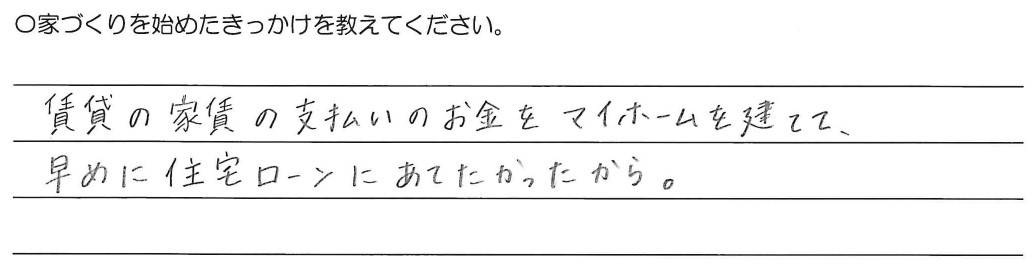 〇家づくりを始めたきっかけを教えてください。
賃貸の家賃の支払いのお金をマイホームを建てて、
早めに住宅ローンにあてたかったから。